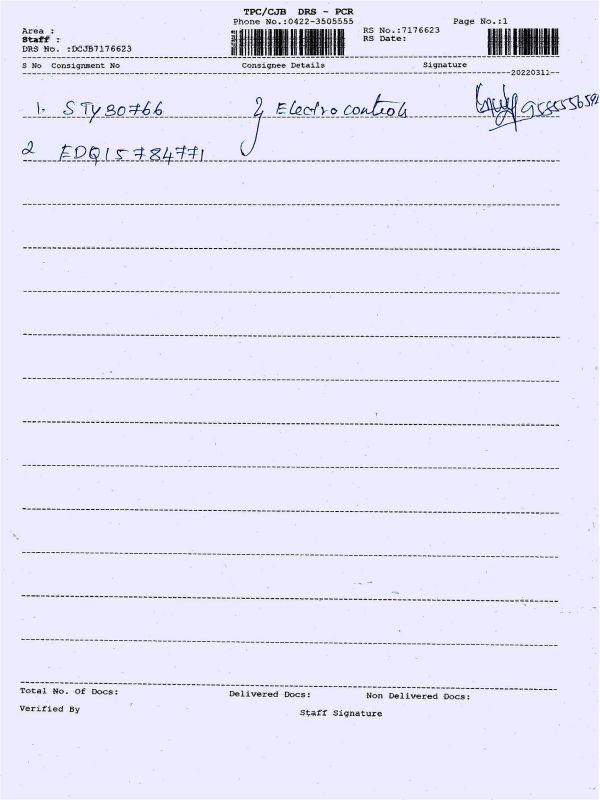 TPC/CJB DRS - PCR
Phone No.:0422-3505555
Page No.:1
Area :
RS No.:7176623
Staff :
RS Date:
DRS No. :DCJB7176623
S No Consignment No Consignee Details Signature
20220311
1. STY30766 Electro controls
2 EDQ15784771
Total No. Of Docs: Delivered Docs: Non Delivered Docs:
Verified By Staff Signature